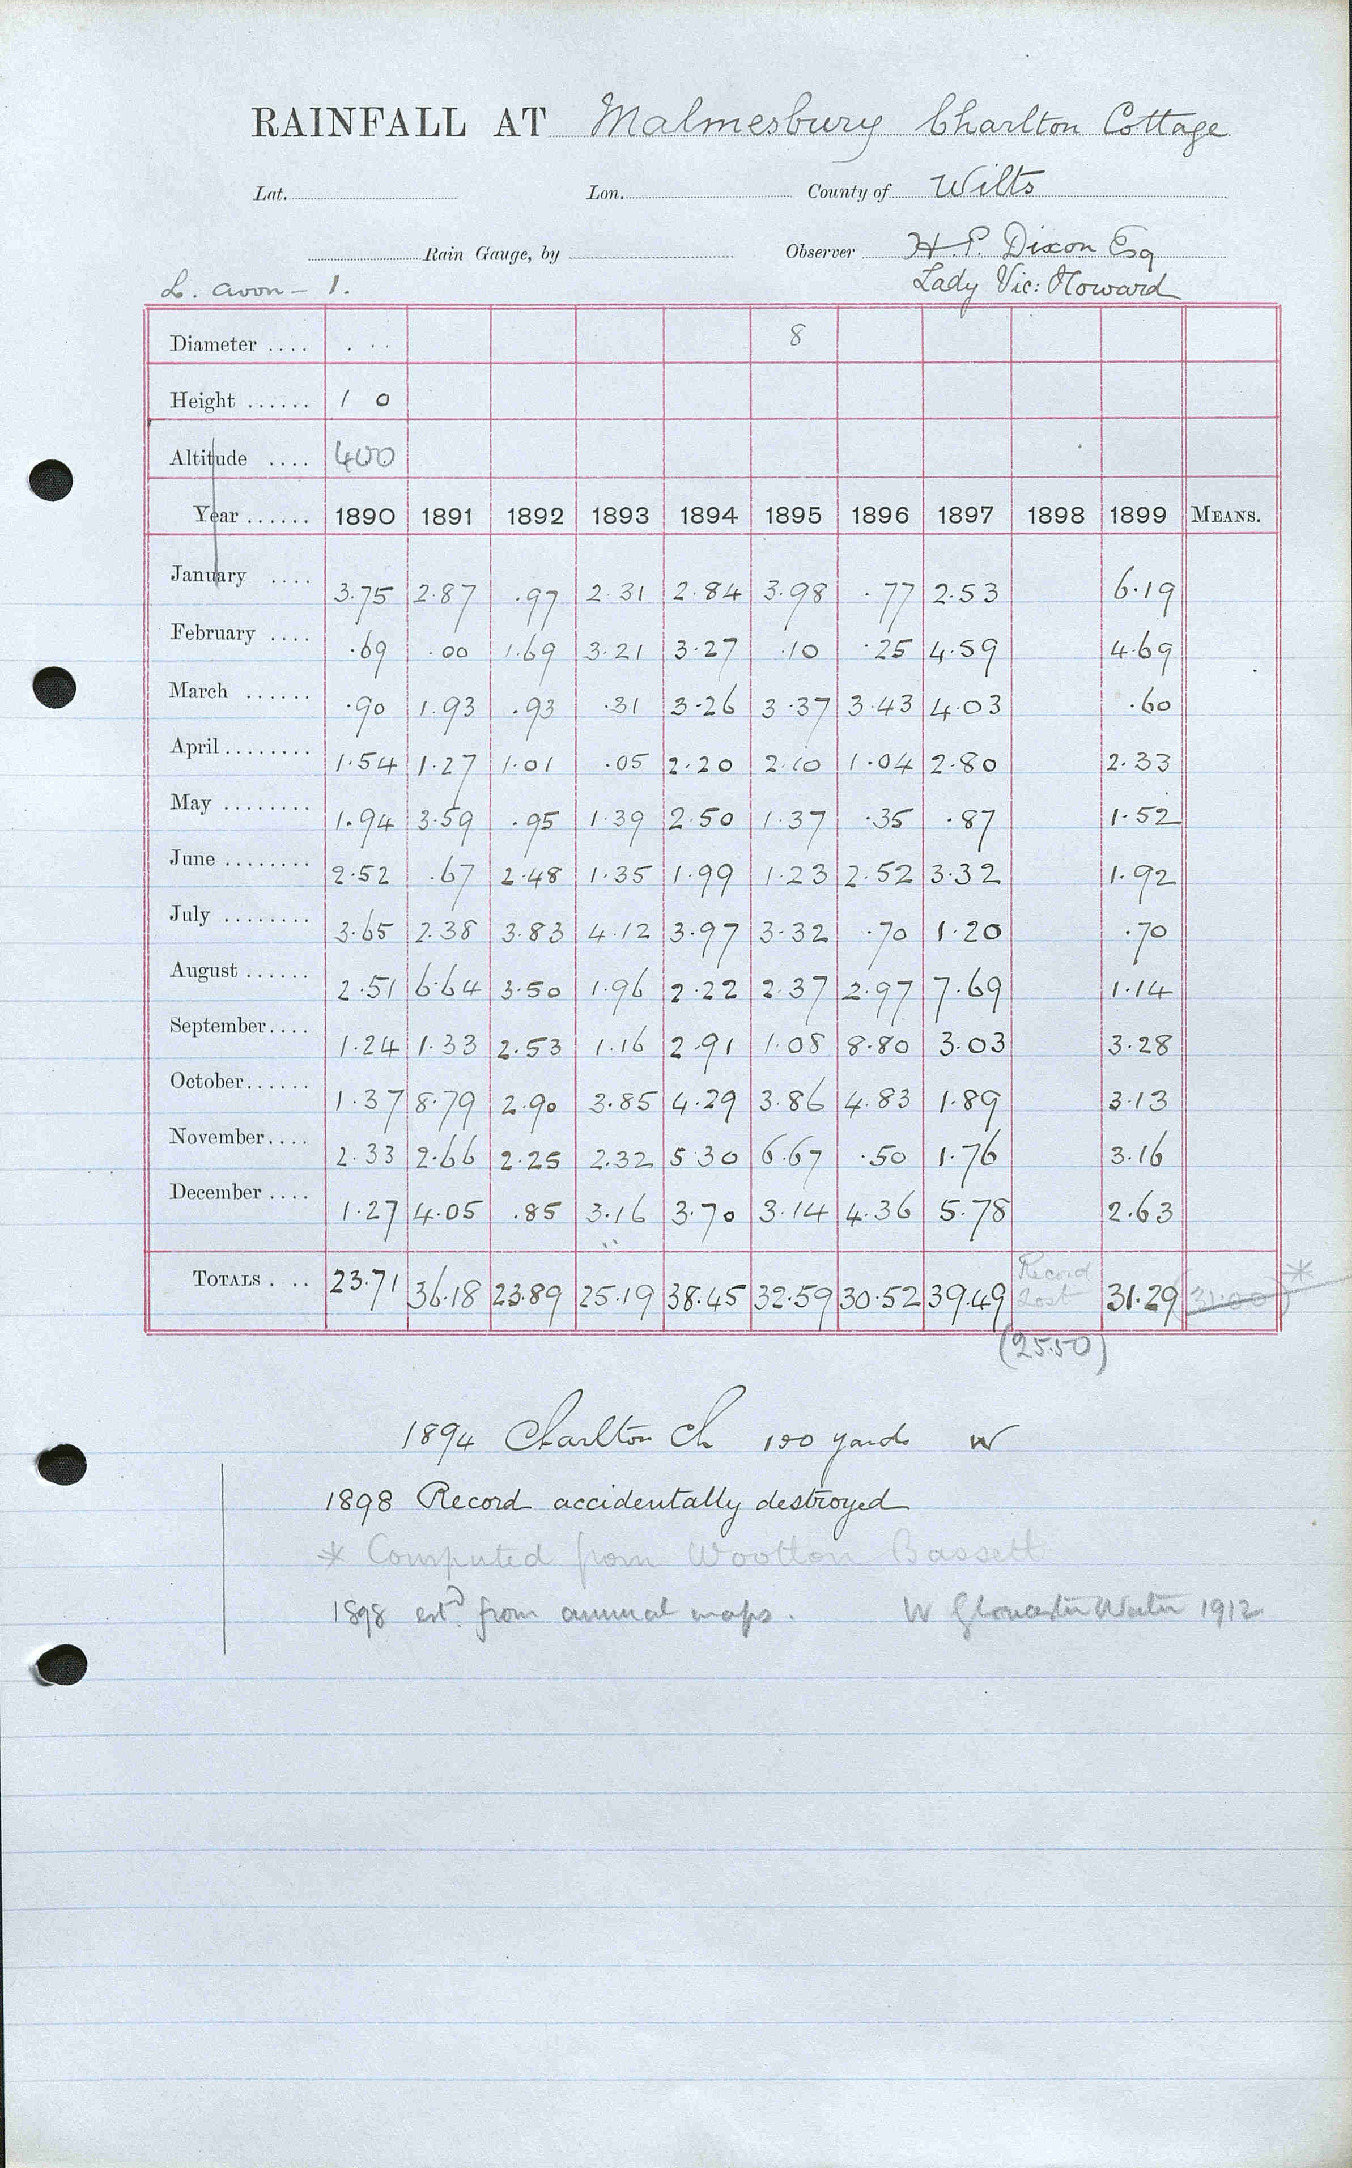 RAINFALL AT Malmesbury Charlton Cottage
Lat. Lon. County of Wilts
Rain Gauge, by Observer H. P. Dixon Esq
L. Avon – 1. Lady Vic: Howard
Diameter .... 8
Height ...... 1 0
Altitude .... 400
Year ...... 1890 1891 1892 1893 1894 1895 1896 1897 1898 1899 MEANS.
January .... 3.75 2.87 .97 2.31 2.84 3.98 .77 2.53 6.19
February .... .69 .00 1.69 3.21 3.27 .10 .25 4.59 4.69
March ...... .90 1.93 .93 .31 3.26 3.37 3.43 4.03 .60
April ........ 1.54 1.27 1.01 .05 2.20 2.10 1.04 2.80 2.33
May ........ 1.94 3.59 .95 1.39 2.50 1.37 .35 .87 1.52
June ........ 2.52 .67 2.48 1.35 1.99 1.23 2.52 3.32 1.92
July ........ 3.65 2.38 3.83 4.12 3.97 3.32 .70 1.20 .70
August ...... 2.51 6.64 3.50 1.96 2.22 2.37 2.97 7.69 1.14
September .... 1.24 1.33 2.53 1.16 2.91 1.08 8.80 3.03 3.28
October ...... 1.37 8.79 2.90 3.85 4.29 3.86 4.83 1.89 3.13
November .... 2.33 2.66 2.25 2.32 5.30 6.67 .50 1.76 3.16
December .... 1.27 4.05 .85 3.16 3.70 3.14 4.36 5.78 2.63
TOTALS . .. 23.71 36.18 23.89 25.19 38.45 32.59 30.52 39.49 Record Lost 31.29 (31.00) *
(25.50)
1894 Charlton Ch 150 yards W
1898 Record accidentally destroyed
* Computed from Wootton Bassett
1898 estd from annual maps. W Gloucester Water 1912